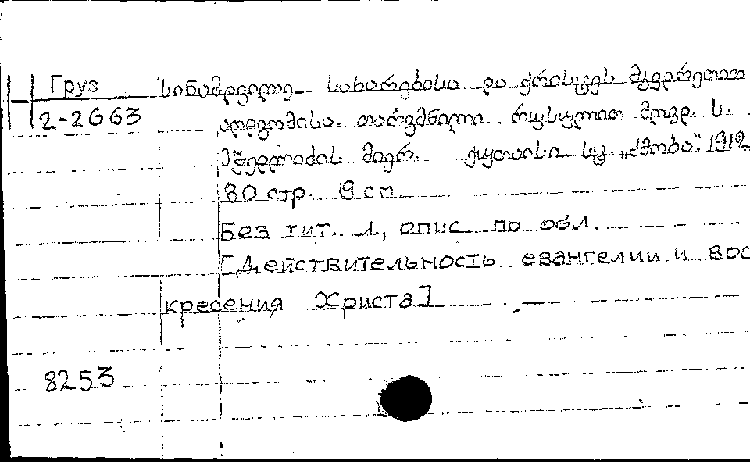 Груз სინამდვილე სახარებისა და ქრისტეს მკვდრეთით
2-2663 აღდგომისა. თარგმნილი რუსულით მღვდ. ს.
მჭედლიძის მიერ. ქუთაისი სტ. „ძმობა“. 1912
80 стр. 8 см
Без тит. л., опис. по обл.
[Действительность евангелии и вос
кресения Христа]
8253